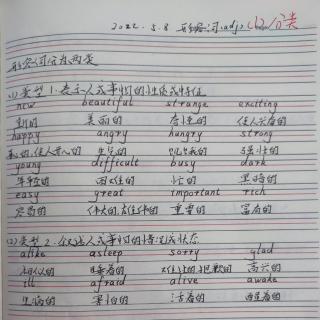 2022.5.8 形容词(adj)(1)分类
形容词分为两类
(1)类型1.表示人或事物的性质或特征
new beautiful strange exciting
新的 美丽的 奇怪的 令人兴奋的
happy angry hungry strong
生气的 强壮的
young difficult busy dark
年轻的 困难的 忙的 黑暗的
easy great important rich
容易的 重要的 富有的
(2)类型2.叙述人或事物的情况或状态
alike asleep sorry glad
相似的 睡着的 高兴的
ill afraid alive awake
生病的 害怕的 活着的 醒着的